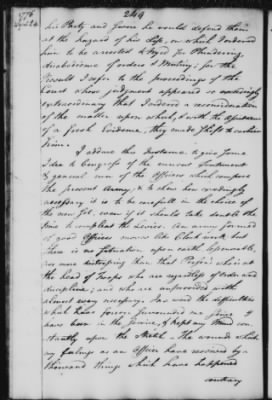 249
1776
Sept 24
his Party and swore he would defend them
at the hazard of his life, on which I ordered
him to be arrested & tryed for Plundering,
disobedience of orders & Mutiny; for the
Result I refer to the proceedings of the
Court whose judgment appeared so exceedingly
extraordinary that I ordered a reconsideration
of the matter upon which, & with the assistance
of a fresh Evidence, they made shift to cashier
him.
I adduce this Instance to give some
Idea to Congress of the current Sentiment
& general run of the Officers which compose
the present Army; & to shew how exceedingly
necessary it is to be careful in the choice of
the new Set, even if it should take double the
time to compleat the Levies. An army formed
of good Officers moves like Clock work; but
there is no Situation upon earth less enviable,
nor more distressing than that Person's who is at
the head of Troops who are regardless of Order and
discipline; and who are unprovided with
almost every necessary. In a word the difficulties
which have forever surrounded me since I
have been in the Service, & kept my Mind con-
stantly upon the Stretch. The wounds which
my feelings as an Officer have received by a
thousand things which have happened
contrary